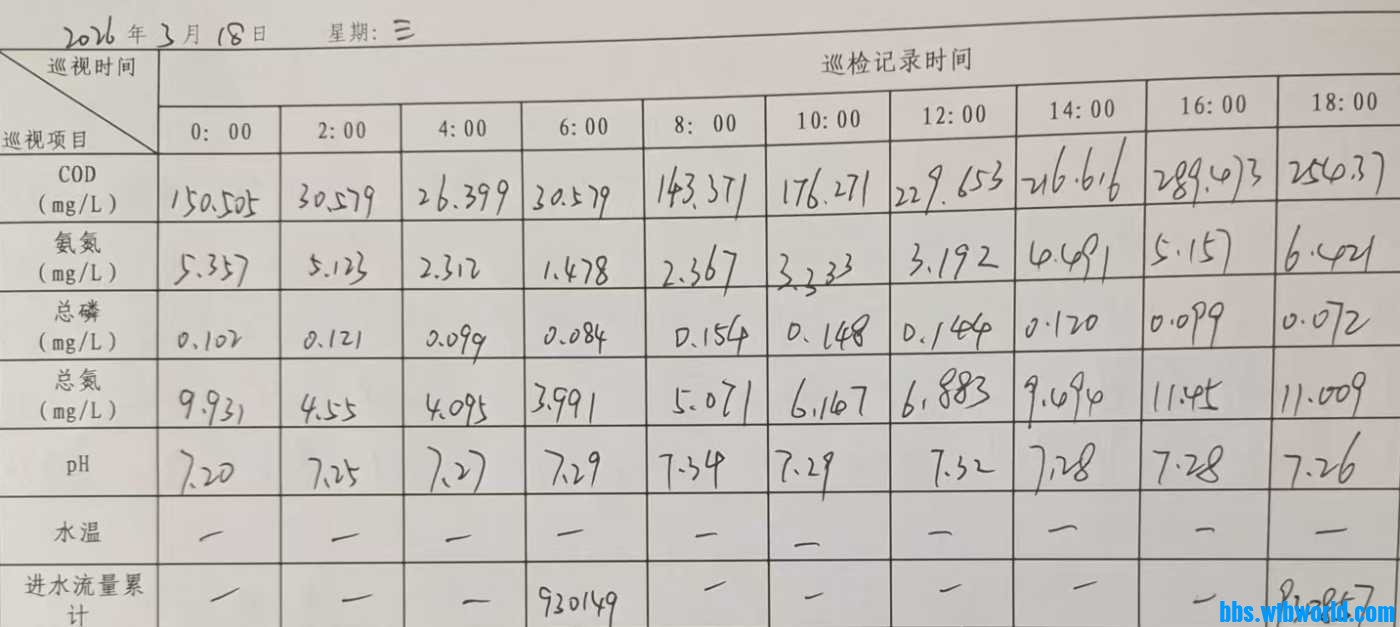 2026年3月18日 星期:三
巡视时间 巡检记录时间
巡视项目 0:00 2:00 4:00 6:00 8:00 10:00 12:00 14:00 16:00 18:00
COD
(mg/L) 150.505 30.579 26.399 30.579 143.371 176.271 229.653 216.616 289.473 254.37
氨氮
(mg/L) 5.357 5.123 2.312 1.478 2.367 3.233 3.192 4.491 5.157 6.421
总磷
(mg/L) 0.102 0.121 0.099 0.084 0.154 0.148 0.144 0.120 0.099 0.072
总氮
(mg/L) 9.931 4.55 4.095 3.991 5.071 6.147 6.883 9.494 11.45 11.009
pH 7.20 7.25 7.27 7.29 7.34 7.29 7.32 7.28 7.28 7.26
水温 — — — — — — — — — —
进水流量累
计 — — — 930149 — — — — —
bbs.wfbworld.com